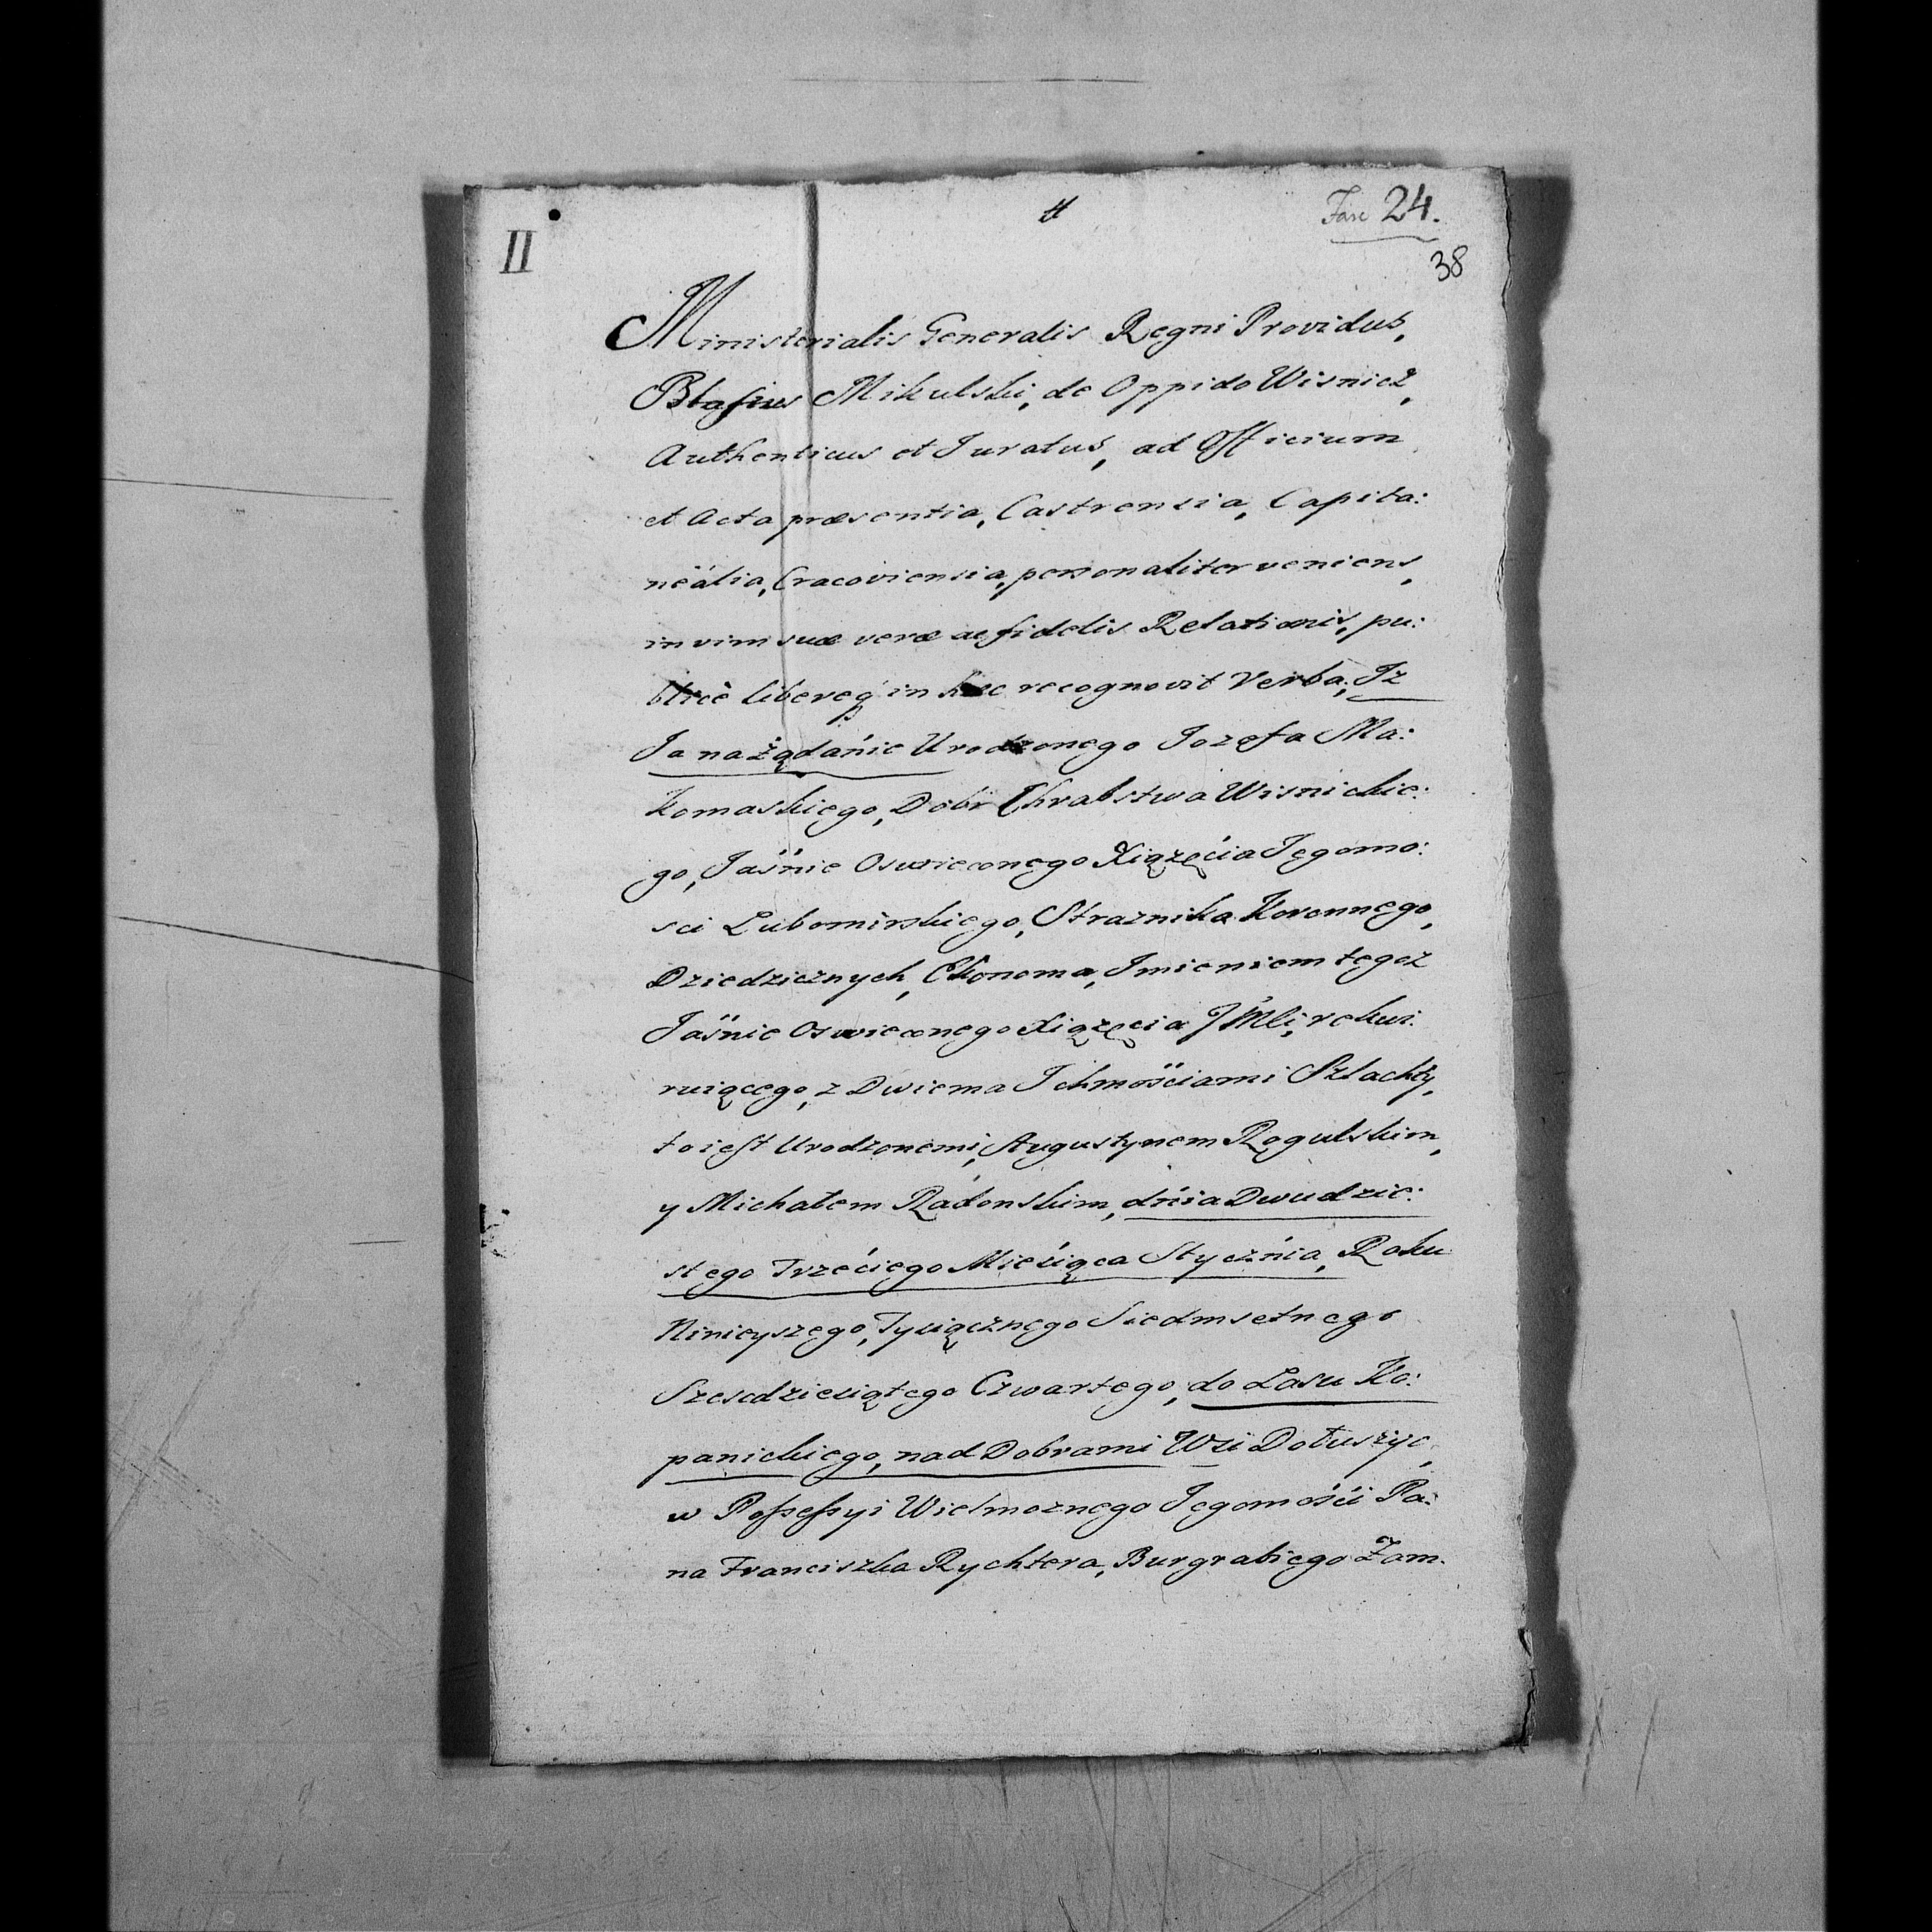 Fasc 24.
II
38
Ministerialis Generalis Regni Providus,
Blasius Mikulski, de Oppido Wisnicz,
Authenticus et Juratus, ad Officium
et Acta præsentia, Castrensia, Capita:
neália, Cracoviensia, personaliter veniens,
in vim suæ veræ ac fidelis Relationis, pu:
blicè libereq in hæc recognovit Verba; Iz
Ja na żądánie Urodzonego Jozefa Ma:
komaskiego, Dobr Chrabstwa Wisnickie:
go, Jaśnie Oswieconego Xiążęćia Jegomo:
sci Lubomirskiego, Straznika Koronnego,
Dziedzicznych, Ekonoma, Imieniem tegoz
Jaśnie Oswieconego Xiążęcia JMCi, rekwi:
ruiącego, z Dwiema Ichmośćiami Szlachty,
to iest Urodzonemi, Augustynem Rogulskim,
y Michałem Radonskim, dńia Dwudzie:
stego Trzećiego Mieśiąca Stycżńia, Roku
Ninieyszego, Tysiącznego Siedmsetnego
Szescdziesiątego Czwartego, do Lasu Ko:
panickiego, nad Dobrami Wsi Dołuszyc,
w Possessyi Wielmoznego Jegomośći Pa:
na Franciszka Rychtera, Burgrabiego Zam: